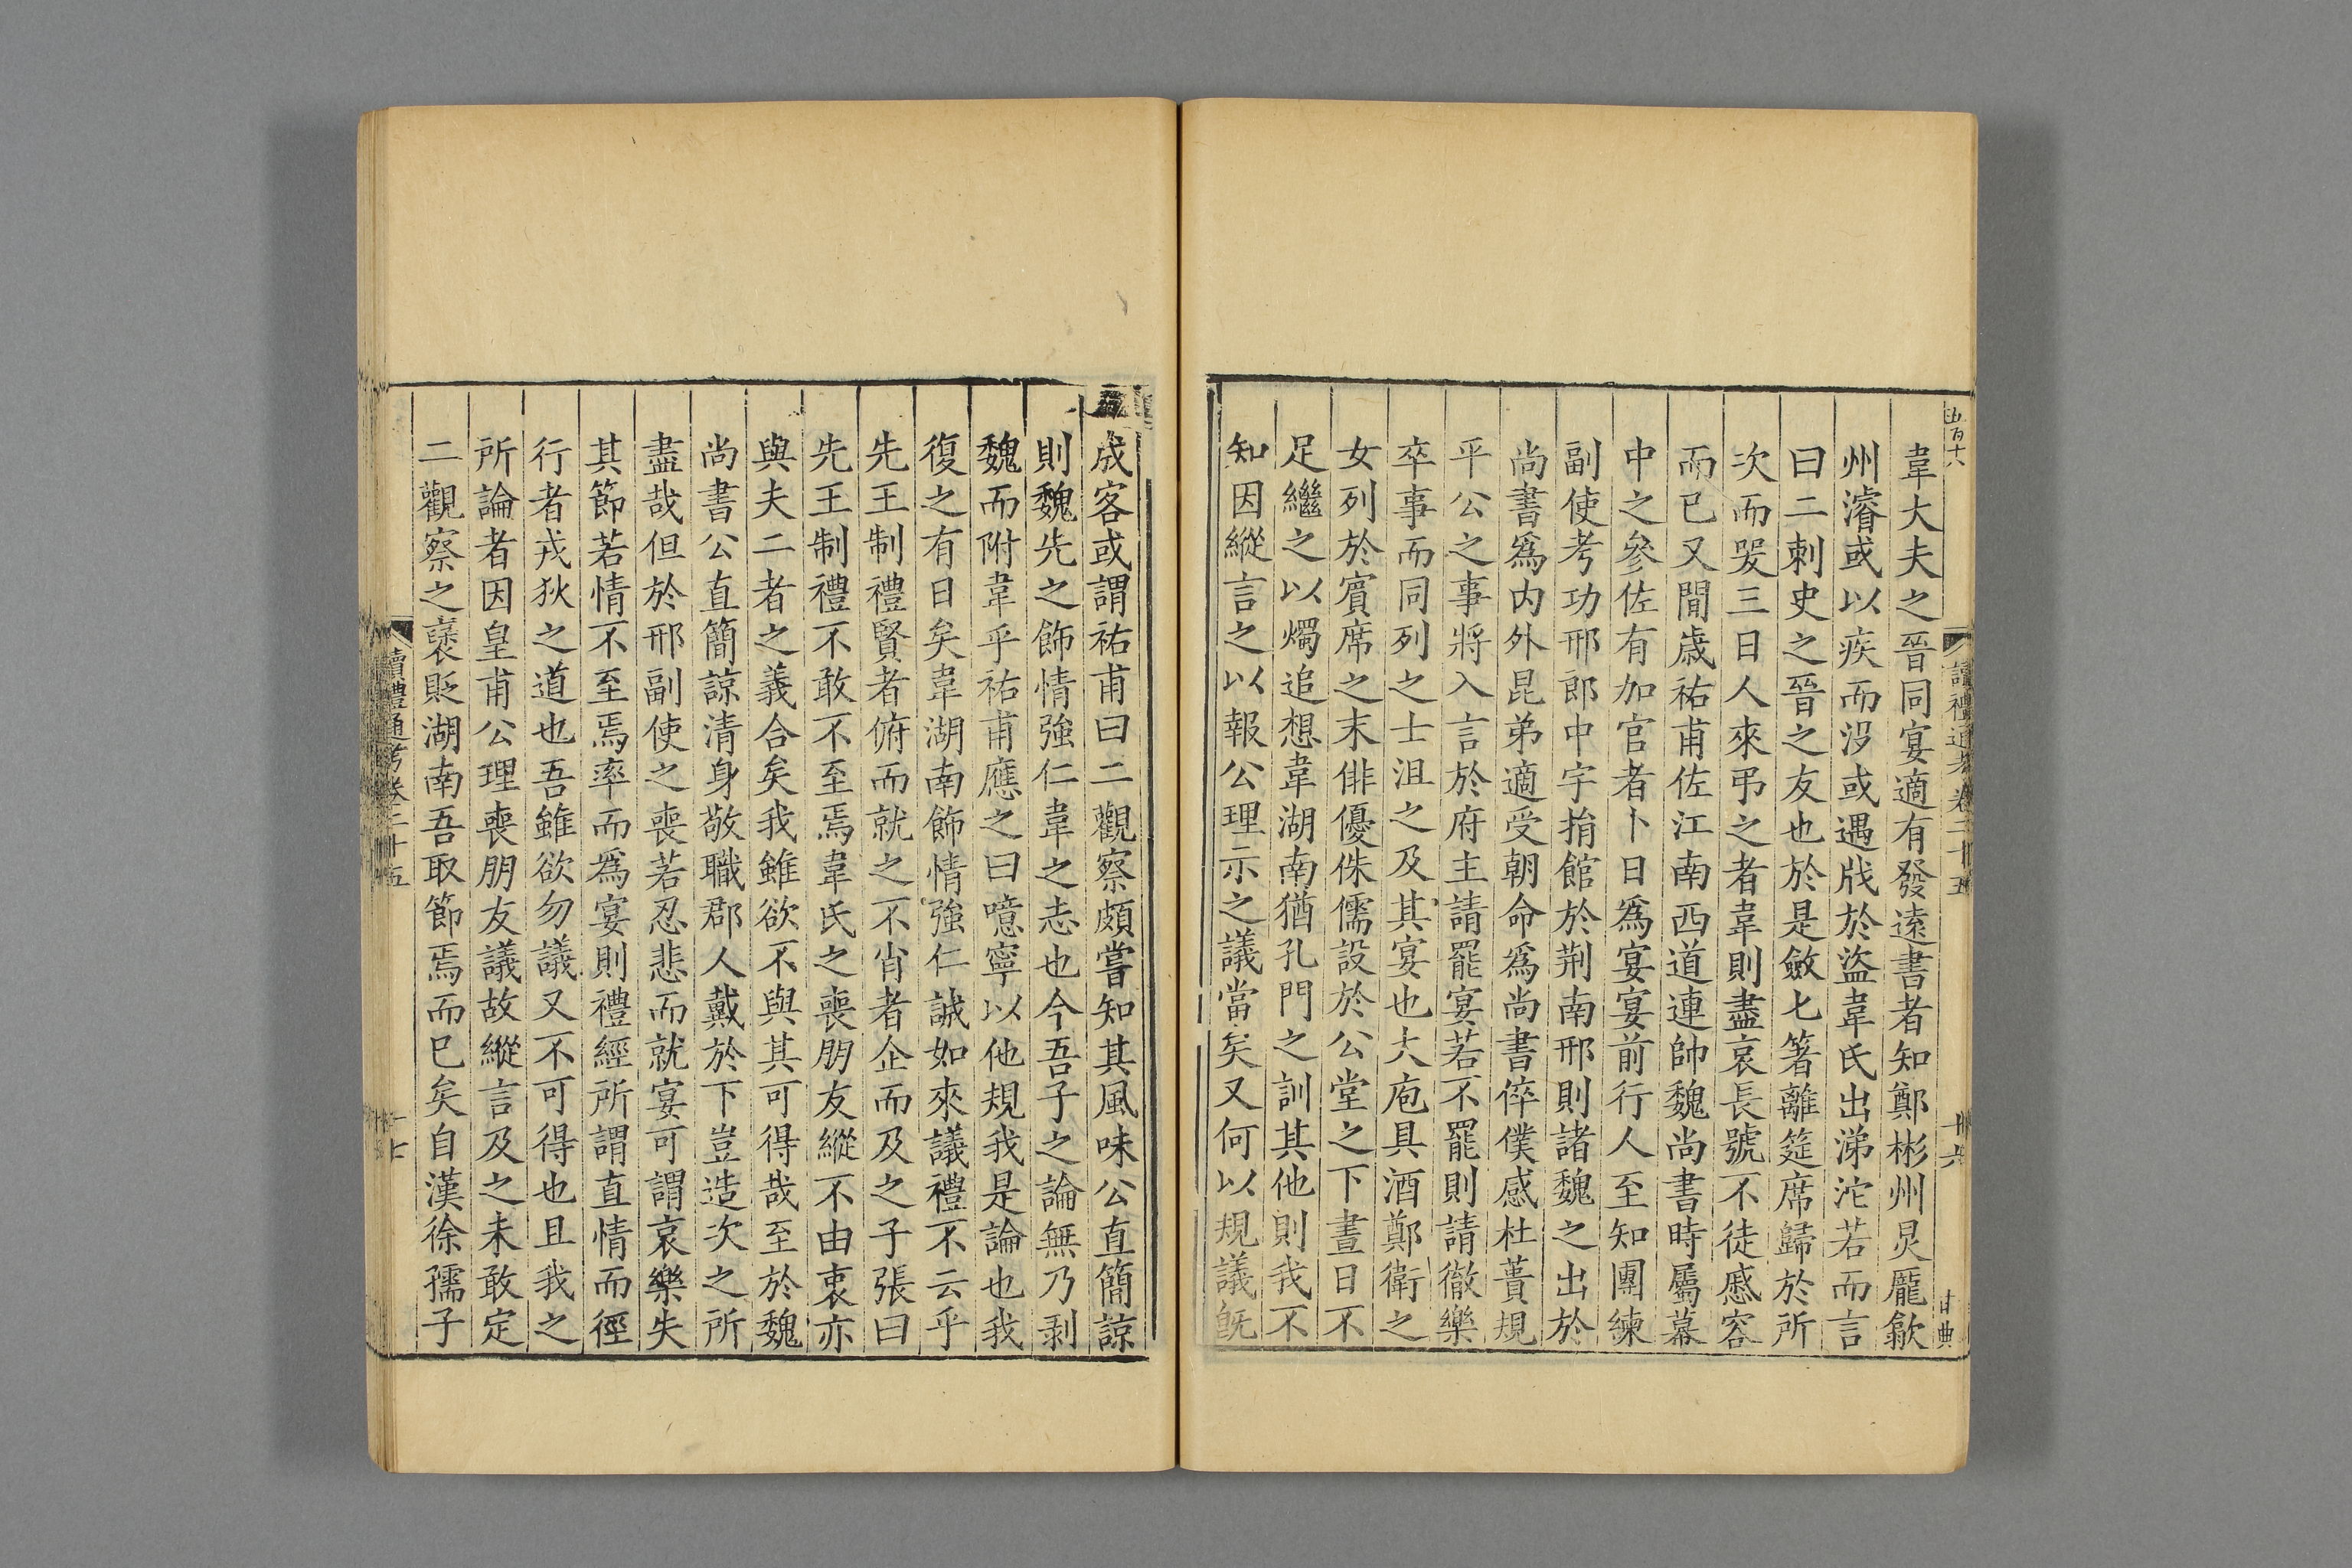 韋大夫之晉同宴適有發遠書者知鄭彬州炅龎歙
州濬或以疾而没或遇戕於盜韋氏出涕沱若而言
曰二刺史之晉之友也於是斂匕箸離筵席歸於所
次而哭三日人來弔之者韋則盡哀長號不徒慼容
而已又閒歲祐甫佐江南西道連帥魏尚書時屬幕
中之參佐有加官者卜日爲宴宴前行人至知團練
副使考功邢郎中宇捐館於荆南邢則諸魏之出於
尚書爲内外昆弟適受朝命爲尚書倅僕感杜蕢規
平公之事將入言於府主請罷宴若不罷則請徹樂
卒事而同列之士沮之及其宴也大庖具酒鄭衛之
女列於賓席之末俳優侏儒設於公堂之下晝日不
足繼之以燭追想韋湖南猶孔門之訓其他則我不
知因縱言之以報公理示之議當矣又何以規議旣
讀禮通考卷二十五
成客或謂祐甫曰二觀察頗嘗知其風味公直簡諒
則魏先之飾情強仁韋之志也今吾子之論無乃剥
魏而附韋乎祐甫應之曰噫寧以他規我是論也我
復之有日矣韋湖南飾情強仁誠如來議禮不云乎
先王制禮賢者俯而就之不肖者企而及之子張曰
先王制禮不敢不至焉韋氏之喪朋友縱不由衷亦
與夫二者之義合矣我雖欲不與其可得哉至於魏
尚書公直簡諒清身敬職郡人戴於下豈造次之所
盡哉但於邢副使之喪若忍悲而就宴可謂哀樂失
其節若情不至焉率而爲宴則禮經所謂直情而徑
行者戎狄之道也吾雖欲勿議又不可得也且我之
所論者因皇甫公理喪朋友議故縱言及之未敢定
二觀察之襃貶湖南吾取節焉而已矣自漢徐孺子
讀禮通考卷二十五